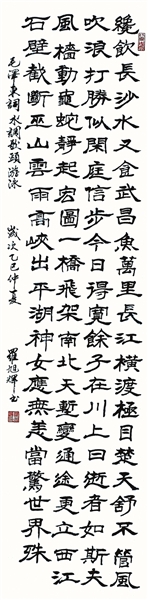 纔飲長沙水又食武昌魚萬里長江橫渡極目楚天舒不管風
吹浪打勝似閑庭信步今日得寬餘子在川上曰逝者如斯夫
風檣動龜蛇靜起宏圖一橋飛架南北天塹變通途更立西江
石壁截斷巫山雲雨高峽出平湖神女應無恙當驚世界殊
毛澤東詞水調歌頭游泳 歲次乙巳仲夏 羅旭輝書